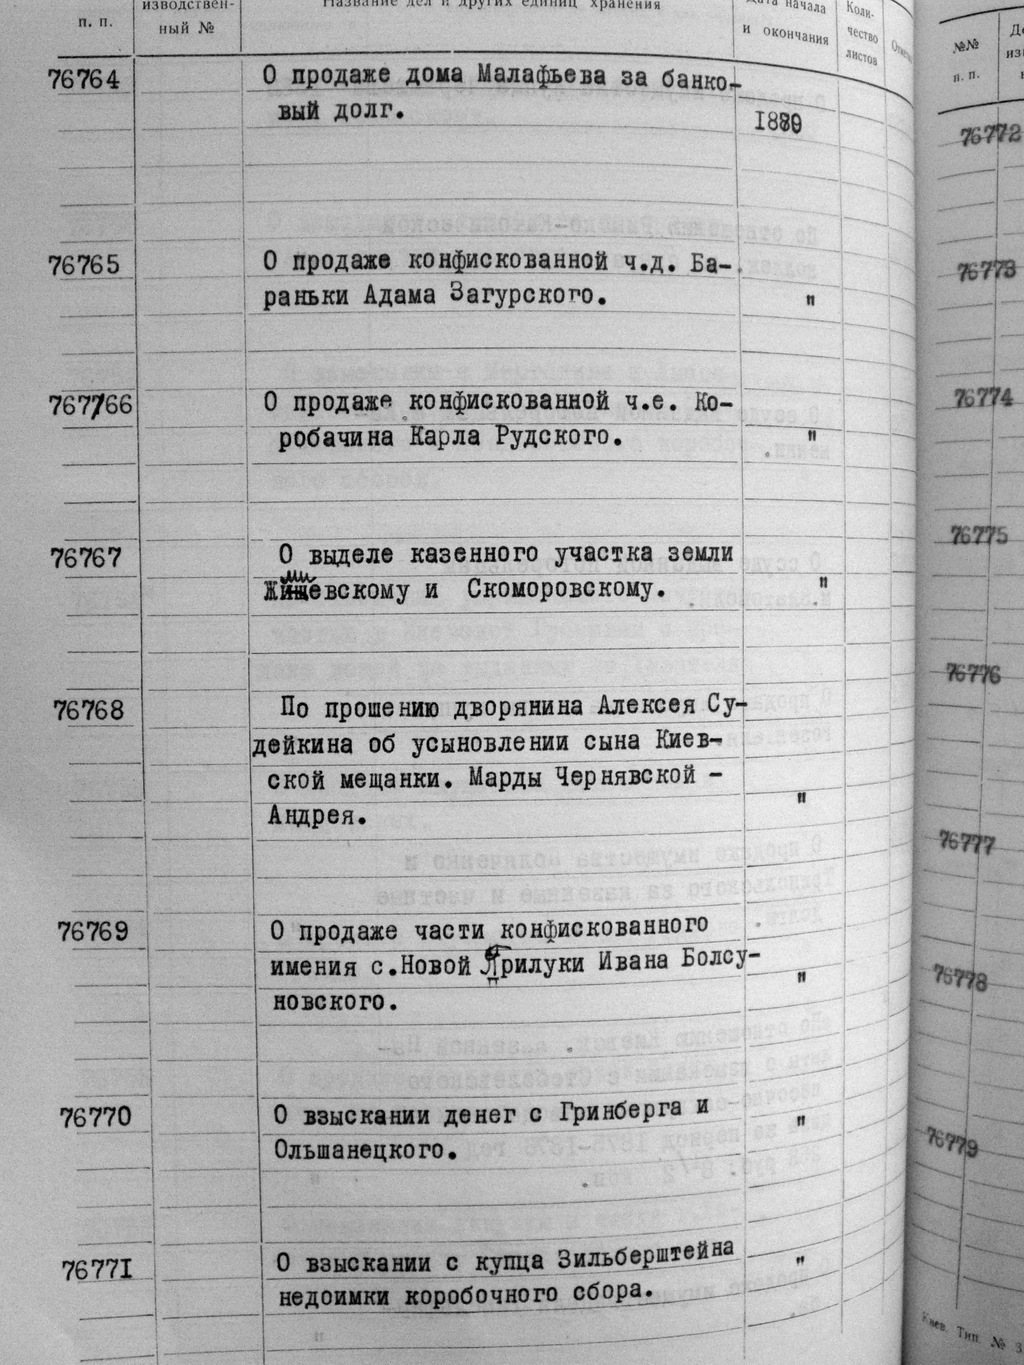 п. п.
изводствен-
ный №
Название дел и других единиц хранения
Дата начала
и окончания
Коли-
чество
листов
76764
О продаже дома Малафьева за банко-
вый долг.
76765
О продаже конфискованной ч.д. Ба-
раньки Адама Загурского.
"
767766
О продаже конфискованной ч.е. Ко-
робачина Карла Рудского.
"
76767
О выделе казенного участка земли
и Скоморовскому.
"
76768
По прошению дворянина Алексея Су-
дейкина об усыновлении сына Киев-
ской мещанки. Марды Чернявской -
Андрея.
"
76769
О продаже части конфискованного
имения с.Новой Прилуки Ивана Болсу-
новского.
"
76770
О взыскании денег с Гринберга и
Ольшанецкого.
"
76771
О взыскании с купца Зильберштейна
недоимки коробочного сбора.
"
№№
п. п.
76772
76773
76774
76775
76776
76777
76778
76779
Киев. Тип. №